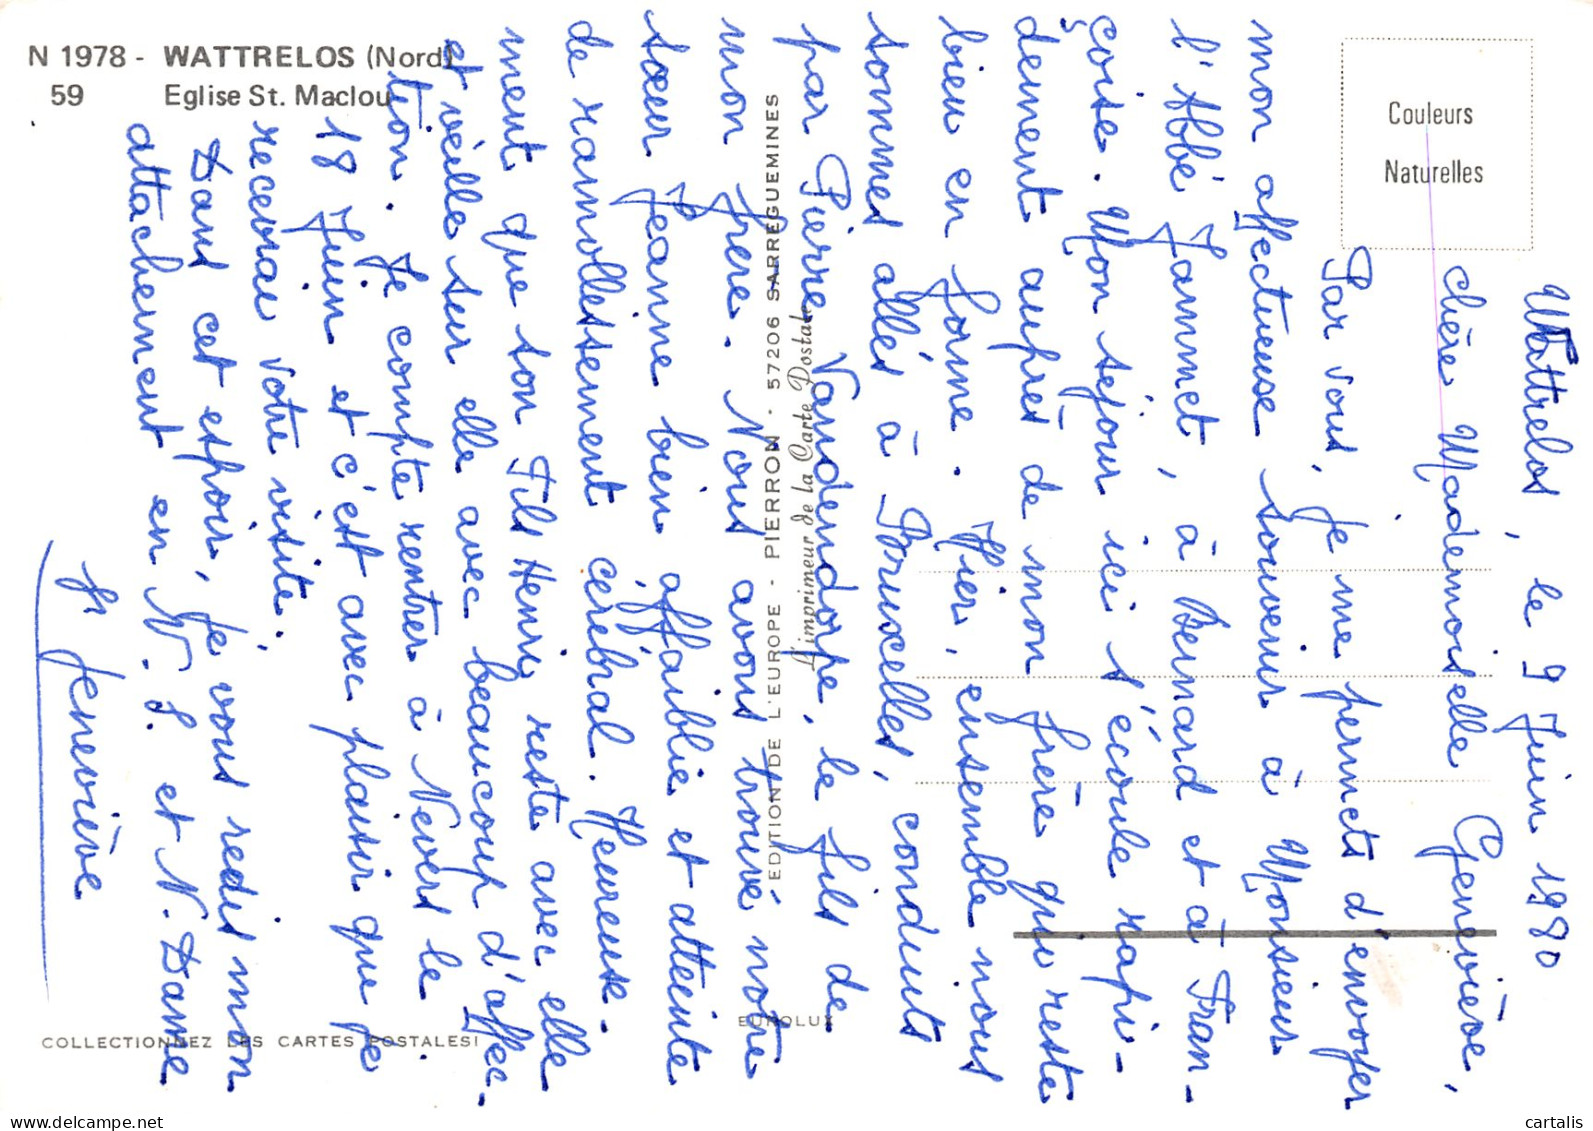 N 1978 - WATTRELOS (Nord)
59 Eglise St. Maclou
Couleurs
Naturelles
EDITION DE L'EUROPE - PIERRON - 57206 SARREGUEMINES
L'imprimeur de la Carte Postale
EUROLUX
COLLECTIONNEZ LES CARTES POSTALES!
Wattrelos, le 9 Juin 1980
chère Mademoiselle Geneviève,
Par vous, je me permets d'envoyer
mon affectueuse souvenir à Monsieur
l'Abbé Jammet, à Bernard et à Fran-
çoise. Mon séjour ici s'écoule rapi-
dement auprès de mon frère qui reste
bien en forme. Hier, ensemble nous
sommes allés à Bruxelles, conduits
par Pierre Vandendorpe, le fils de
mon frère. Nous avons trouvé notre
sœur Jeanne bien affaiblie et atteinte
de ramollissement cérébral. Heureuse-
ment que son Fils Henri reste avec elle
et veille sur elle avec beaucoup d'affec-
tion. Je compte rentrer à Nevers le
18 Juin et c'est avec plaisir que je
recevrai votre visite.
Dans cet espoir, je vous redis mon
attachement en N. S. et N. Dame
Sr Geneviève
www.cartalis.com
Cartalis